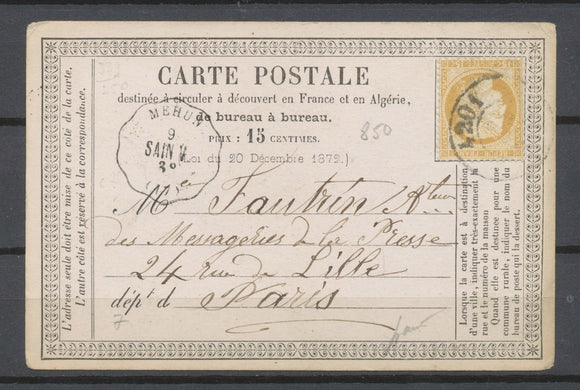 CARTE POSTALE
destinée à circuler à découvert en France et en Algérie,
de bureau à bureau.
PRIX : 15 CENTIMES.
(Loi du 20 Décembre 1872.)
850
MEHUN
9
SAIN V.
Mr
des Messageries de la Presse
24 rue de Lille
dépt d Paris
7
L'adresse seule doit être mise de ce côté de la carte.
L'autre côté est réservé à la correspondance.
Lorsque la carte est à destination
d'une ville, indiquer très-exactement la
rue et le numéro de la maison
Quand elle est destinée pour une
commune rurale, indiquer le nom du
bureau de poste qui la dessert.